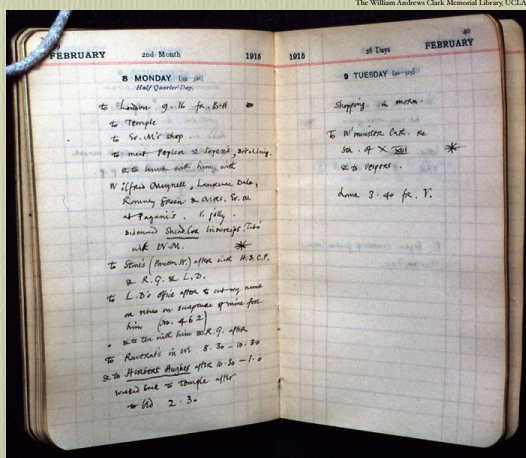 The William Andrews Clark Memorial Library, UCLA
FEBRUARY 2nd Month 1915
8 MONDAY [39-326]
Half Quarter Day.
to London 9.16 fr.
to Temple
to Sr. M's shop
to meet Pepler re Sorrels, Ditchling.
& to lunch with him, with
Wilfred Meynell, Laurence Dale,
Romney Green & Mrs. Sr. M
at Pagani's. V. jolly.
Discussed
with W.M.
to Stone's after with H.D.C.P.
& R.G. & L.D.
to L.D's office after & cut my name
on relief on sculpture of mine for
him (No. 462)
& to tea with him & R.G. after
to Raverat's in 8.30 - 10.30
& to Herbert Hughes after 10.30 - 1.0
walked back to Temple after
to bed 2.30
1915 28 Days FEBRUARY 40
9 TUESDAY [40-325]
Shopping in morn.
To W'minster Cath. re
Sta. of X XIII
& to vespers.
home 3.40 fr. V.